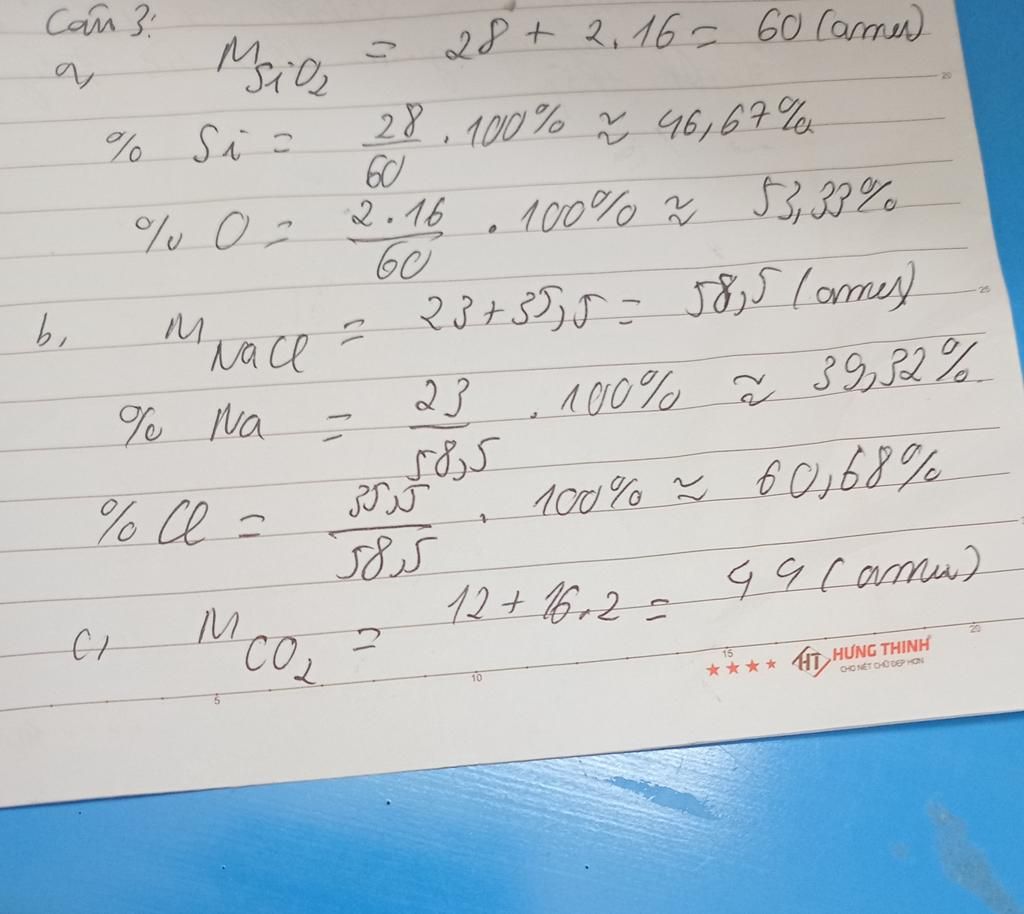 Câu 3:
a, M SiO2 = 28 + 2.16 = 60 (amu)
% Si = 28/60 . 100% ≈ 46,67%
% O = 2.16/60 . 100% ≈ 53,33%
b, M NaCl = 23+35,5 = 58,5 (amu)
% Na = 23/58,5 . 100% ≈ 39,32%
% Cl = 35,5/58,5 . 100% ≈ 60,68%
c, M CO2 = 12 + 16.2 = 44 (amu)
5 10 15 20
HT HƯNG THỊNH
CHO NÉT CHỮ ĐẸP HƠN
20
25